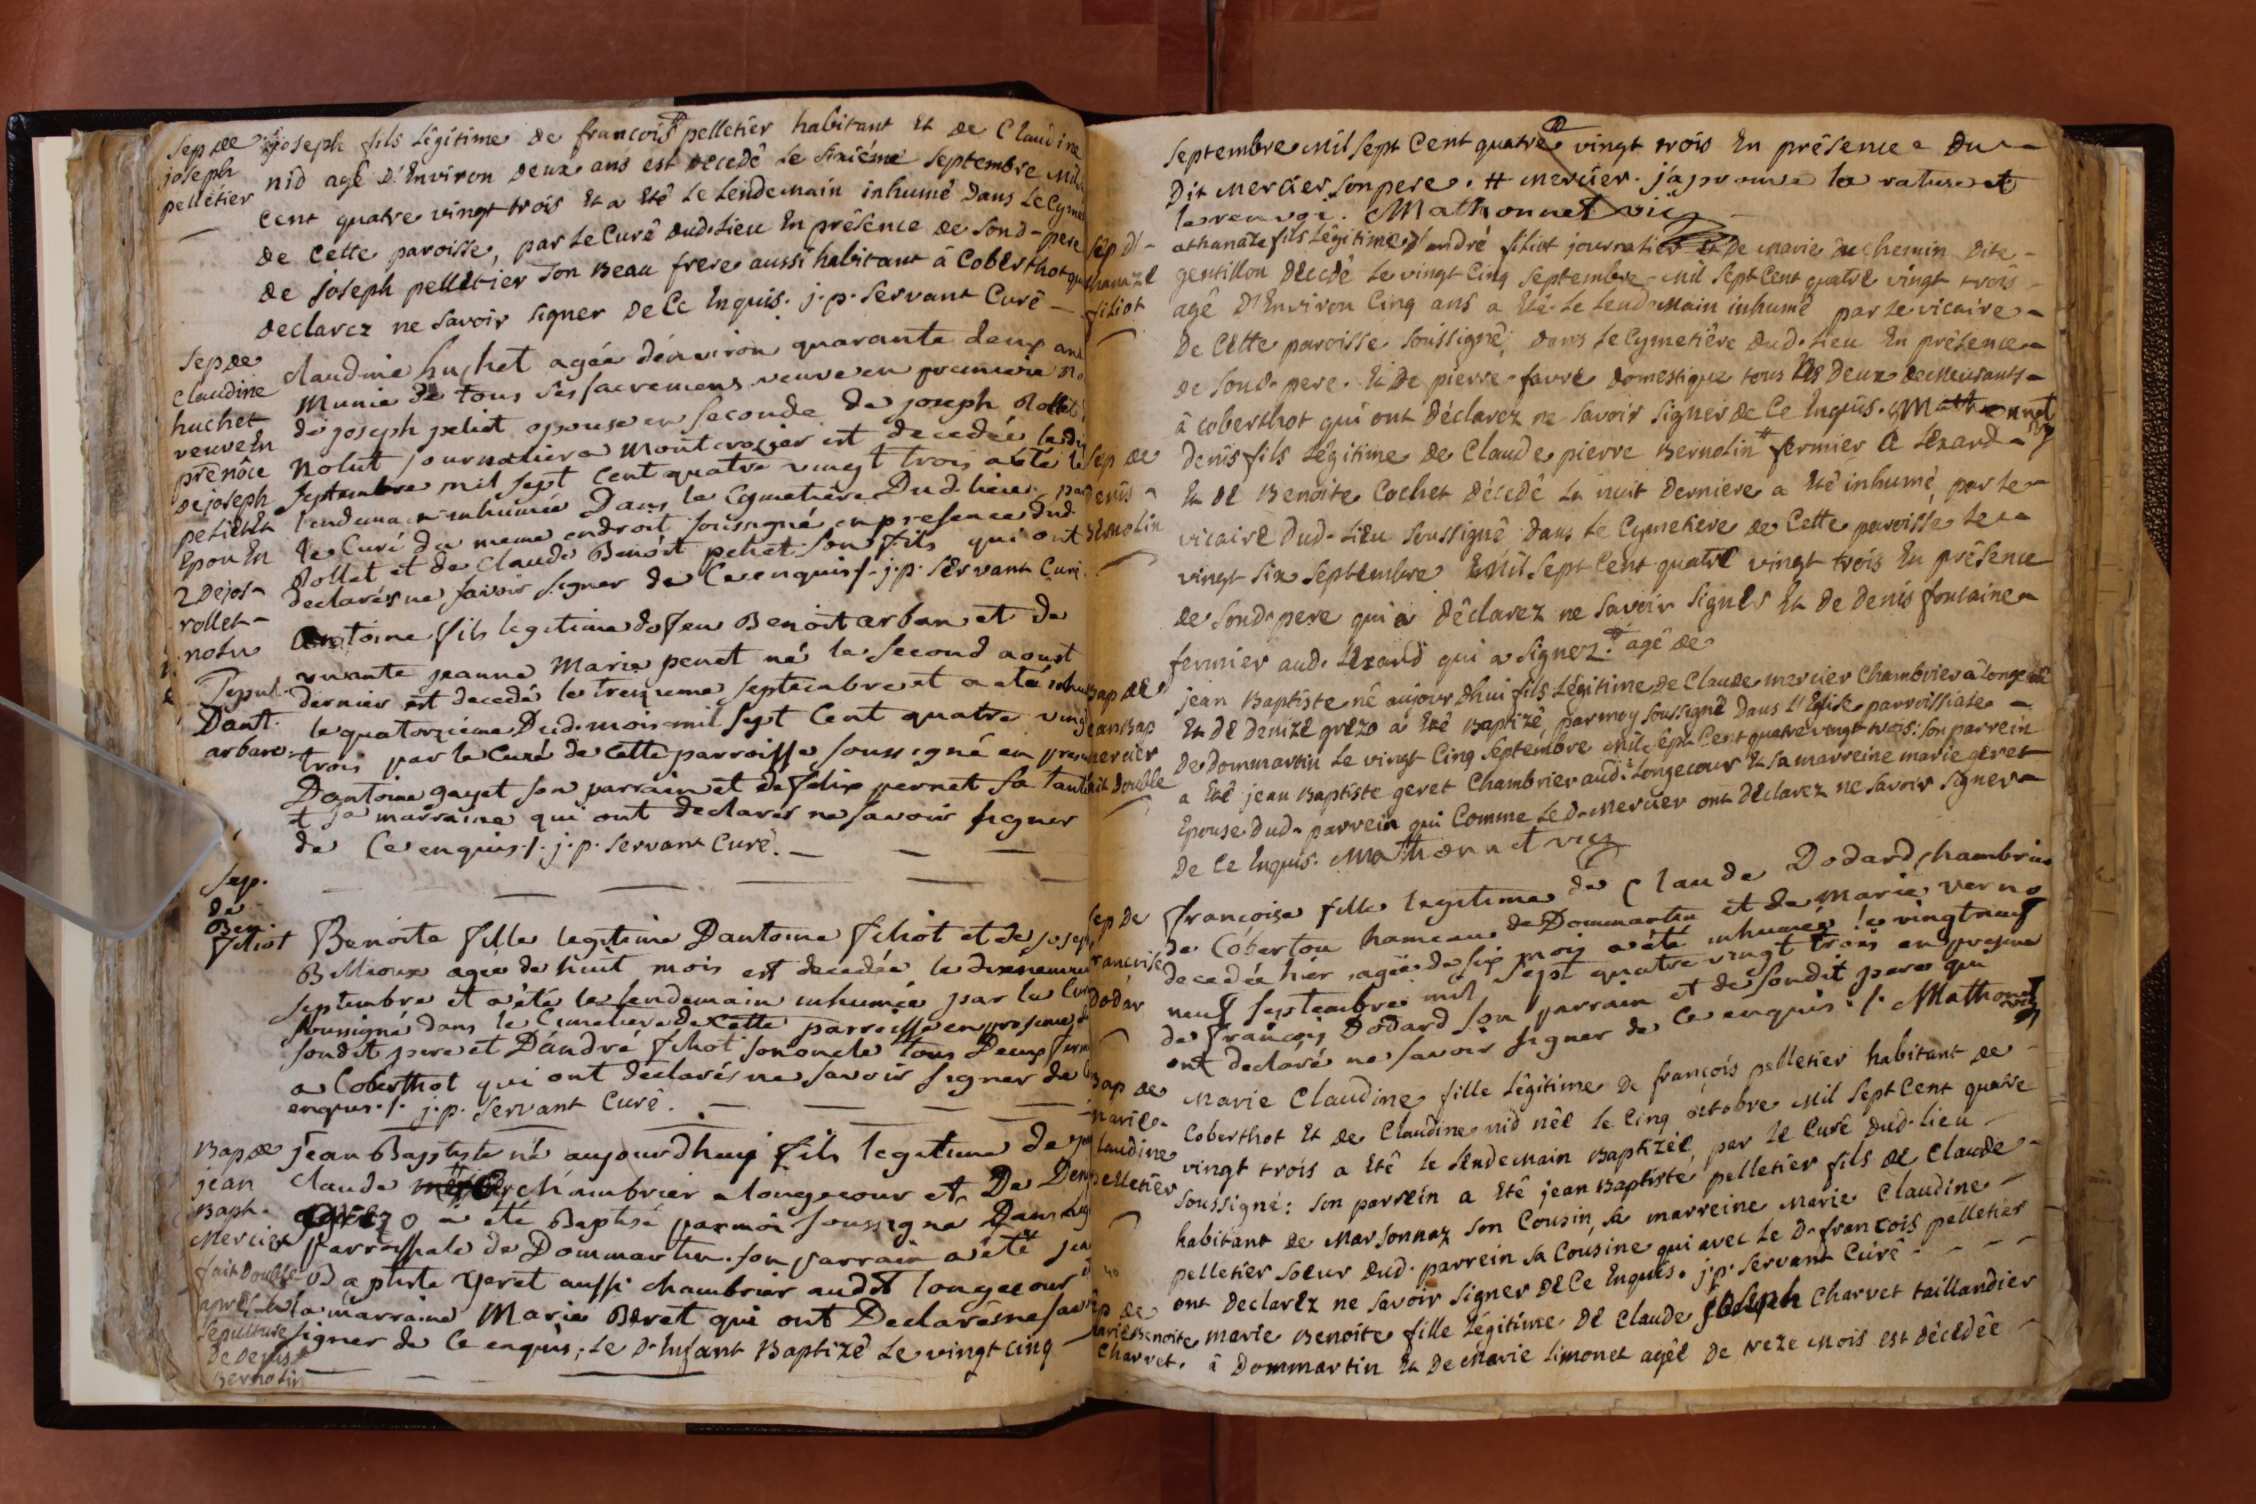 Sep de
joseph
pelletier
joseph fils légitime de françois pelletier habitant et de Claudine
nid agé d'Environ deux ans est decedé le sixiéme septembre mil
cent quatre vingt trois Et a Eté le lendemain inhumé dans le Cyme
de cette paroisse, par le Curé dud. lieu En présence de sond. pere
de joseph pelletier son Beau frere aussi habitant à Coberthot qui
declarez ne savoir signer de Ce Enquis. j. p. Servant Curé
Sep de
Claudine
huchet
veuve En
pre nôce
de joseph
petiet Et
Epou En
2 de jos
rollet
nolu
claudine huchet agée d'environ quarante deux ans
Munie de tous ses sacremens veuve en premiere no
de joseph peliet epouse en seconde de joseph Rollet
Nolut journalier a Montcrozier est decedée le
septembre mil sept Cent quatre vingt trois a été le
lendemain inhumée Dans le Cymetiere Dud lieu par
le Curé du meme endroit soussigné en presence dud
Rollet et de Claude Benoit peliet son fils qui ont
declarés ne savoir signer de Ce enquis /. j. p. Servant Curé.
Sepul.
Dant.
arban
Antoine fils légitime de feu Benoit arban et de
vivante jeanne Marie penet né le second aoust
dernier est decedé le treizieme septembre et a eté inhu
le quatorzieme Dud. mois mil sept Cent quatre vingt
trois par le Curé de Cette parroisse soussigné en pres
Dantoine gayet son parrain et de felix pernet sa tante
et sa marraine qui ont declarés ne savoir signer
de Ce enquis /. j. p. Servant Curé.
Sep.
de
Ben.
filiot
Benoite fille legitime Dantoine filiot et de joseph
Billioux agée de huit mois est decedée le dixneuvie
septembre et a été le lendemain inhumée par le Curé
soussigné dans le Cimetiere de Cette parroisse en presence de
sondit pere et Dandré filiot son oncle tous Deux ferm
a Coberthot qui ont declarés ne savoir signer de Ce
enquis /. j. p. Servant Curé.
Bap de
jean
Bapt.
Mercier
fait double
après la
sepulture
de denis
Bernolin
jean Baptiste né aujourdhuy fils legitime de
claude chambrier a longecour et De Den
grezo a été Baptisé par moi soussigné Dans
parroissiale de Dommartin. son parrain a été jea
Baptiste geret aussi chambrier audit longecour
la marraine Marie Beret qui ont Declarés ne savoir
signer de Ce enquis; Le d. Enfant Baptizé Le vingt cinq
septembre mil sept Cent quatre vingt trois En présence du
dit mercier son pere. # mercier. j'approuve la rature et
le renvoi. Mathonnet vic
Sep d'
thanaze
filiot
athanaze fils légitime d'andré filiot journalier et de marie duchemin dite
gentillon décédé le vingt cinq septembre mil sept Cent quatre vingt trois
agé d'Environ Cinq ans a Eté le lendemain inhumé par le vicaire
de Cette paroisse soussigné, dans le Cymetière dud. lieu En présence
de sond. pere. Et de pierre favre domestique tous les deux demeurants
à coberthot qui ont déclarez ne savoir signer de Ce Enquis. Mathonnet
vic
Sep de
denis
Bernolin
denis fils légitime de Claude pierre Bernolin # fermier à Lexard
Et de Benoite Cochet décédé la nuit derniere a Eté inhumé par le
vicaire dud. lieu soussigné dans le Cymetiere de Cette paroisse le
vingt six septembre mil sept Cent quatre vingt trois En présence
de sond. pere qui a déclarez ne savoir signer Et de denis fontaine
fermier aud. Lexard qui a signez. # agé de
Bap de
jean Bap
mercier
fait double
jean Baptiste né aujourdhui fils légitime de Claude mercier Chambrier à longecour
Et de denize grezo a Eté Baptizé, par moy soussigné dans l'Eglise parroissiale
de dommartin le vingt Cinq septembre mil sept Cent quatre vingt trois: son parrein
a Eté jean Baptiste geret Chambrier aud. longecour Et sa marreine marie geret
Epouse dud. parrein qui Comme le d. mercier ont déclarez ne savoir signer
de Ce Enquis. Mathonnet vic
Sep de
francoise
Dodar
françoise fille legitime de Claude Dodard chambrier
de Coberton hameau de Dommartin et de Marie verno
decedée hier agée de six moy a été inhumée le vingtneuf
neuf septembre mil sept quatre vingt trois en presence
de françois Dodard son parrain et de sondit pere qui
ont declaré ne savoir signer de Ce enquis /. Mathonnet
vic
Bap de
marie
Claudine
pelletier
Marie Claudine fille légitime de françois pelletier habitant de
Coberthot Et de Claudine nid née le Cinq octobre mil sept Cent quatre
vingt trois a Eté le lendemain Baptizée, par le Curé dud. lieu
soussigné: son parrein a Eté jean Baptiste pelletier fils de Claude
habitant de Marsonnaz son Cousin, sa marreine Marie Claudine
pelletier soeur dud. parrein sa Cousine qui avec le d. françois pelletier
ont declarez ne savoir signer de Ce Enquis. j. p. Servant Curé
Sep de
marie Benoite
Charvet.
marie Benoite fille légitime de Claude joseph Charvet taillandier
à Dommartin Et de marie limonet agée de treze mois est décédée